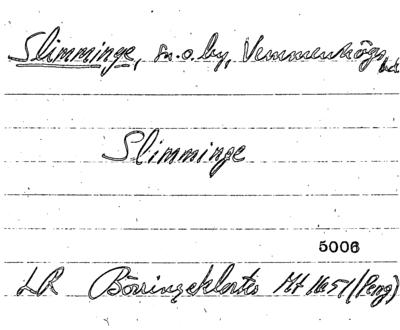 Slimminge, sn.o.by, Vemmenhögs hd
Slimminge
5006
LR Börringekloster Mf 16a51 (Peng)